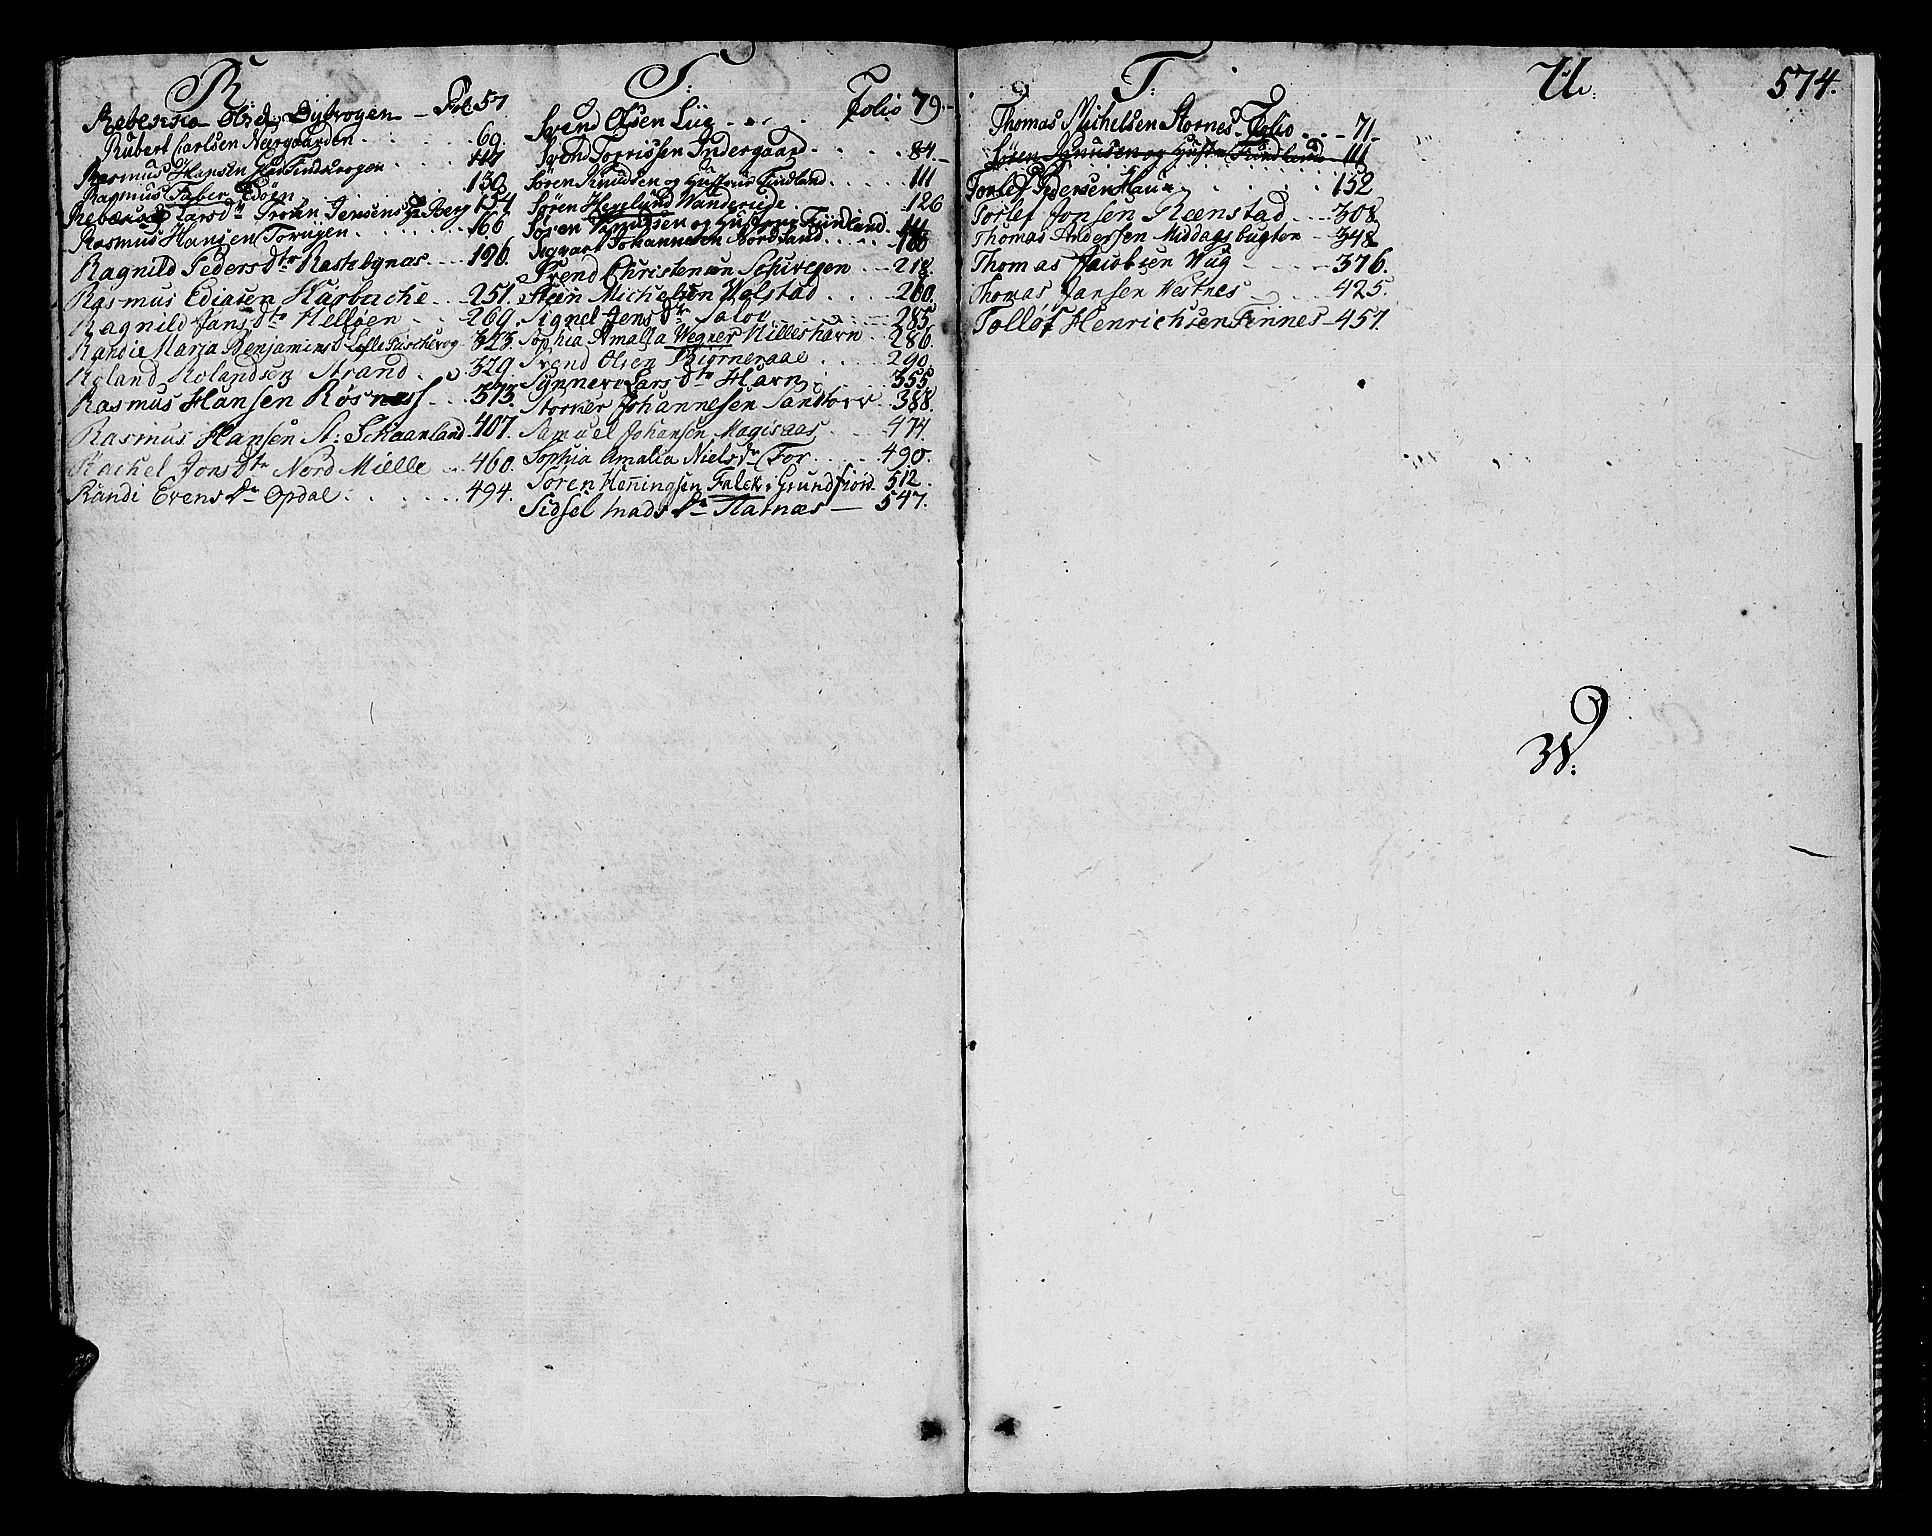 R
Rebecka Olsd: Dybvogen — Fol: 57
Rubert Carlsen Neergaarden . . . . 69
Rasmus Hansen Findvogen . . . 117
Rasmus Faber Edøen . . . . 130
Larsdtr Jensens Berg 154
Rasmus Hansen Torvigen . . . . 160
Ragnild Pedersdtr Rastebynæs . . . 196.
Rasmus Ediasen Harbache . . . 251.
Ragnild Jansdtr Helløen . . . 269.
Randie Marja Benjamins d 323.
Roland Rolandsen Strand . . . 329.
Rasmus Hansen Røsness . . . 373.
Rasmus Hansen St: Schaanland 407.
Rachel Jons dtr Nord Mielle . . 460.
Randi Evens dr Opdal . . . . 494.
S:
Svend Olsen Lüg . . . . Folio 79.
Torrissen Indergaard . . . . 84.
Søren Knudsen og Hustrue Findland . . . 111
Søren Hegelund Wanderiede . . . 126
Søren og Hustrue Findland 111
Sigvart Johannesen Nordsand . . . 160
Svend Christensøn Schivegen . . 218.
Steen Michelsen Holstad . . . 260.
Signel Jensdtr Salov . . . 285.
Sophia Amalia Wegner Milleshavn . 286.
Svend Olsen Biørneraae . . . 290.
Synnev Larsdtr Havn . . . 355.
Storker Johannesen Sandtorv . 388.
Samuel Johansen Magisaas . . . 474.
Sophia Amalia Nielsdr For . . . 490.
Søren Henningsen Falck, Grundfiord 512.
Sidsel Madsdr Flatnæs — 547.
T:
Thomas Michelsen Stornes. Folio . . . 71.
Søren Knudsen og Hustrue Findland 111
Torlef Pedersen Haun . . . . 152
Torlef Jonsen Reenstad . . . 308.
Thomas Andersen Middagsbugten — 348.
Thomas Jacobsen Wug — 376.
Thomas Jansen Westnes — 425.
Tolløf Henrichsen Finnes — 457.
U.
574.
W.